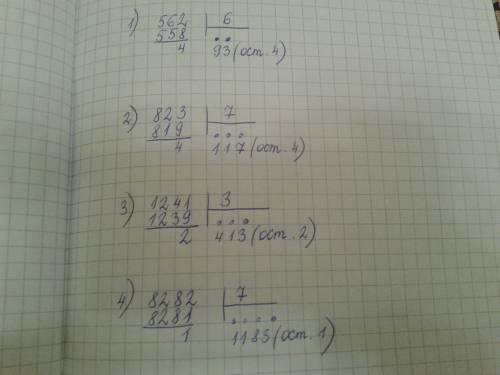 1) 562 | 6
558 93 (ост. 4)
4
2) 823 | 7
819 117 (ост. 4)
4
3) 1241 | 3
1239 413 (ост. 2)
2
4) 8282 | 7
8281 1183 (ост. 1)
1